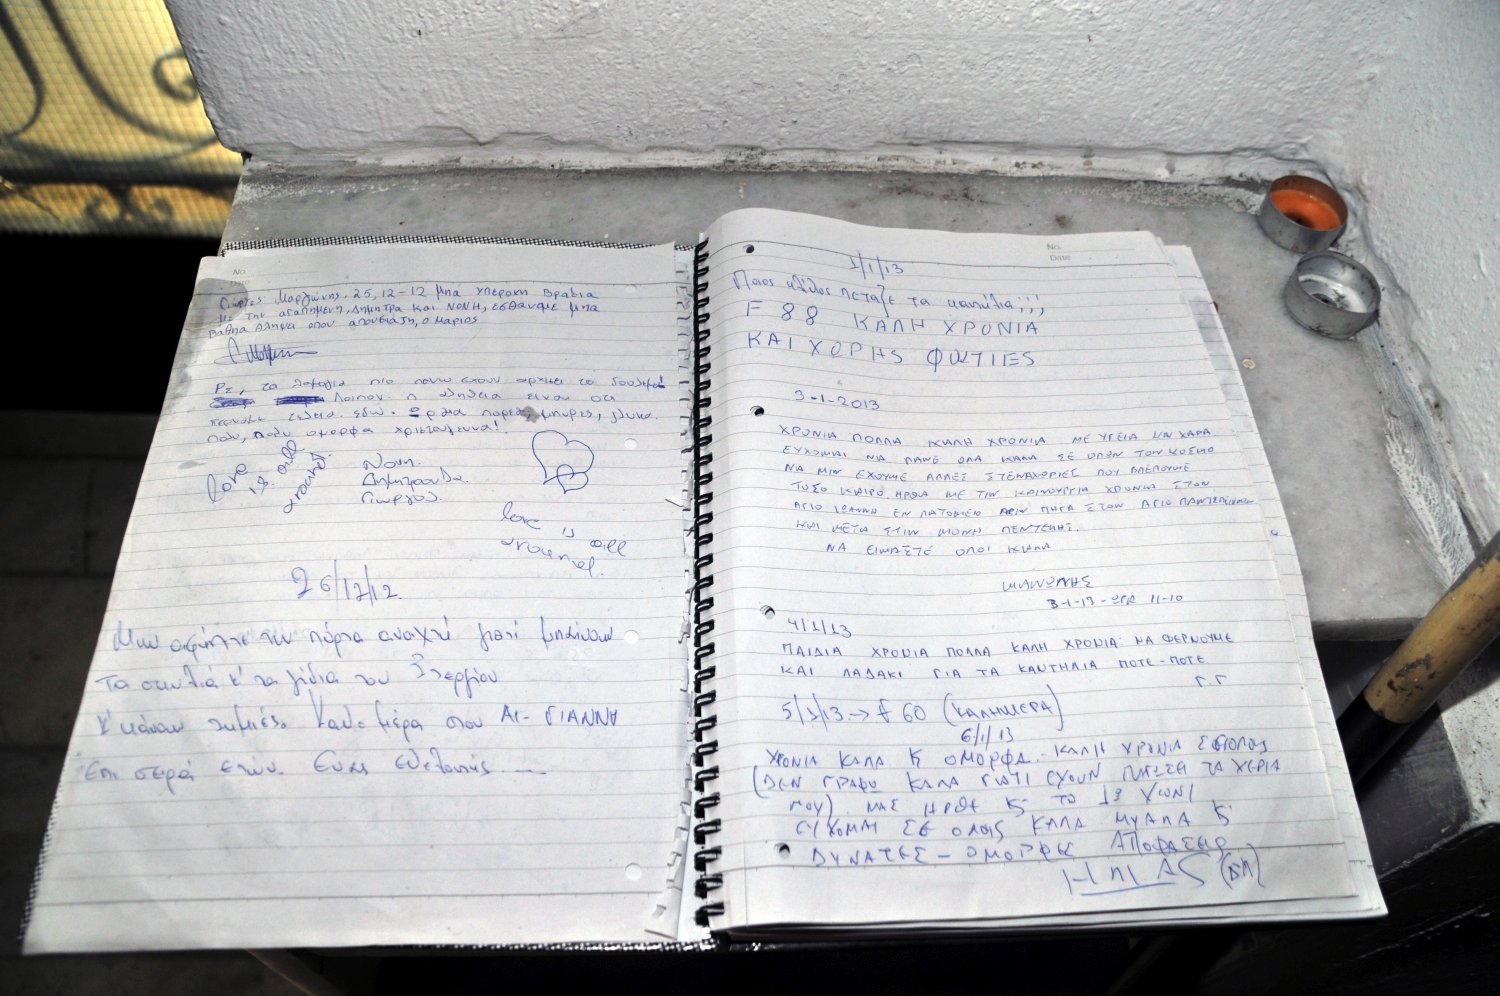 No.
Γιώργος Μαργώνης. 25, 12-12 Μπα υπεροχη βραδια
με την αγαπημενη, Δημητρα και ΝΟΝΗ, εσθαναμε μπα
βαθηα οπου απουσιάζη, ο Μαριος
Ρς, τα πιο πανω εχουν αρχισει το
Λοιπον η αληθεια ειναι οτι
περναμε τελεια εδω. παρεα, μπυρες, γλυκα.
Πολυ, πολυ ομορφα χριστουγεννα!!
love is all around.
Νονη.
Δημητρουλα.
Γιωργος.
love is all
around.
26/12/12.
Μην αφήνετε την πόρτα ανοιχτή γιατί μπαίνουν
Τα σκυλιά κ' τα γίδια του Στεργίου
κ' κάνουν ζημιές. Καθε μέρα στον ΑΙ-ΓΙΑΝΝΗ
Επι σειρά ετών. Ενας εθελοντής.....
No.
Date
1/1/13
Ποιος ηλίθιος πεταξε τα καντήλια;;;
F 88 ΚΑΛΗ ΧΡΟΝΙΑ
ΚΑΙ ΧΩΡΗS ΦΩΤΙΕS
3-1-2013
ΧΡΟΝΙΑ ΠΟΛΛΑ ΚΑΛΗ ΧΡΟΝΙΑ ΜΕ ΥΓΕΙΑ ΚΑΙ ΧΑΡΑ.
ΕΥΧΟΜΑΙ ΝΑ ΠΑΝΕ ΟΛΑ ΚΑΛΑ ΣΕ ΟΛΟΝ ΤΟΝ ΚΟΣΜΟ
ΝΑ ΜΙΝ ΕΧΟΥΜΕ ΑΛΛΕΣ ΣΤΕΝΑΧΟΡΙΕΣ ΠΟΥ ΒΛΕΠΟΥΜΕ
ΤΟΣΟ ΚΑΙΡΟ. ΗΡΘΑ ΜΕ ΤΙΝ ΚΑΙΝΟΥΡΓΙΑ ΧΡΟΝΙΑ ΣΤΟΝ
ΑΓΙΟ ΙΩΑΝΝΗ ΕΝ ΛΑΤΟΜΕΙΟ ΠΗΓΑ ΣΤΟΝ ΑΓΙΟ ΠΑΝΤΕΛΕΙΜΟΝΑ
ΚΑΙ ΜΕΤΑ ΣΤΙΝ ΜΟΝΗ ΠΕΝΤΕΛΗΣ.
ΝΑ ΕΙΜΑΣΤΕ ΟΛΟΙ ΚΑΛΑ
ΜΑΝΩΛΗΣ
3-1-13-ΩΡΑ 11-10
4/1/13
ΠΑΙΔΙΑ ΧΡΟΝΙΑ ΠΟΛΛΑ ΚΑΛΗ ΧΡΟΝΙΑ. ΝΑ ΦΕΡΝΟΥΜΕ
ΚΑΙ ΛΑΔΑΚΙ ΓΙΑ ΤΑ ΚΑΝΤΗΛΙΑ ΠΟΤΕ-ΠΟΤΕ
Γ.Γ
5/1/13.→ F 60 (ΚΑΛΗΜΕΡΑ)
6/1/13
ΧΡΟΝΙΑ ΚΑΛΑ Κ ΟΜΟΡΦΑ. ΚΑΛΗ ΧΡΟΝΙΑ ΣΕ ΟΛΟΥΣ
(ΔΕΝ ΓΡΑΦΩ ΚΑΛΑ ΓΙΑΤΙ ΕΧΟΥΝ ΠΑΓΩΣΕΙ ΤΑ ΧΕΡΙΑ
ΜΟΥ) ΜΑΣ ΗΡΘΕ Κ ΤΟ 13 ΧΙΟΝΙ
ΕΥΧΟΜΑΙ ΣΕ ΟΛΟΥΣ ΚΑΛΑ ΜΥΑΛΑ Κ
ΔΥΝΑΤΕΣ - ΟΜΟΡΦΕΣ ΑΠΟΦΑΣΕΙΣ
ΗΛΙΑΣ (ΔΠ)